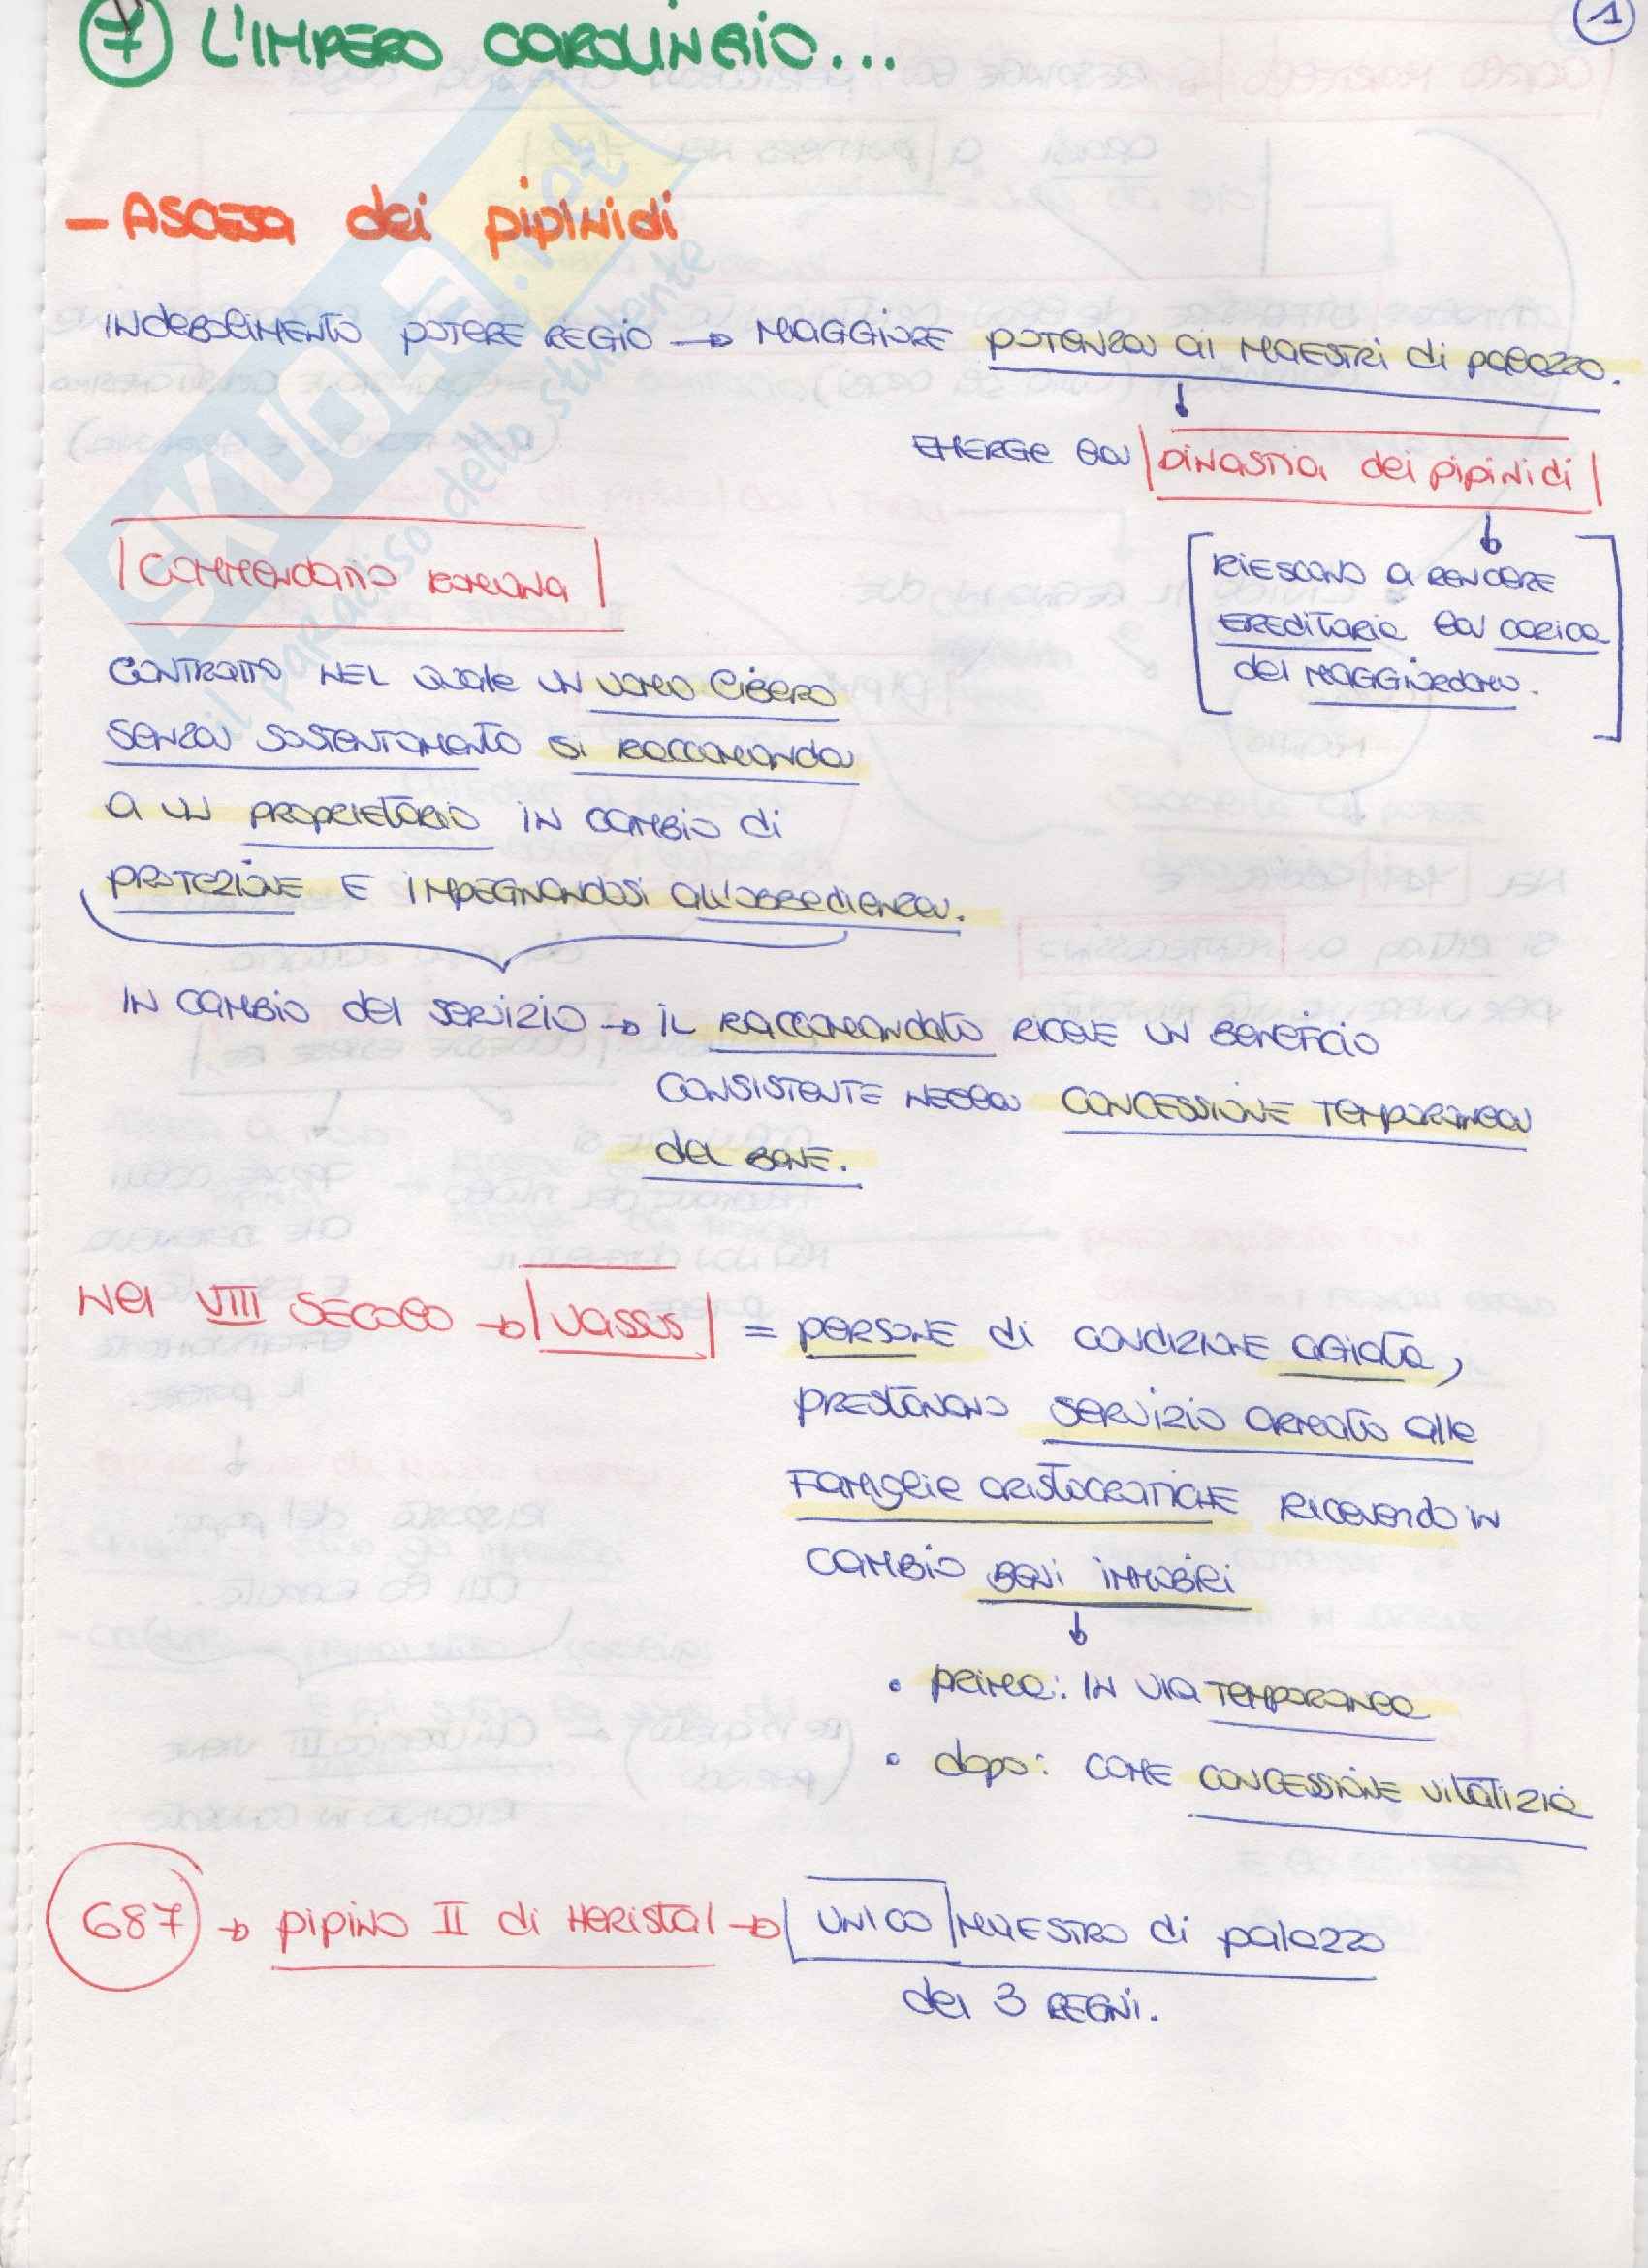 7 L'IMPERO CAROLINGIO...
1
- ASCESA dei pipinidi
INDEBOLIMENTO POTERE REGIO → MAGGIORE POTENZA ai MAESTRI di palazzo.
EMERGE la DINASTIA dei pipinidi
RIESCONO a RENDERE
EREDITARIA la carica
del MAGGIORDOMO.
COMMENDATIO ROMANA
CONTRATTO NEL quale UN UOMO LIBERO
SENZA SOSTENTAMENTO si RACCOMANDA
a UN PROPRIETARIO IN CAMBIO di
PROTEZIONE E IMPEGNANDOSI all'OBBEDIENZA.
IN CAMBIO del SERVIZIO → il RACCOMANDATO RICEVE UN BENEFICIO
CONSISTENTE NELLA CONCESSIONE TEMPORANEA
del BENE.
Nel VIII SECOLO → VASSUS = PERSONE di CONDIZIONE AGIATA,
PRESTAVANO SERVIZIO ARMATO alle
FAMIGLIE ARISTOCRATICHE RICEVENDO IN
CAMBIO BENI IMMOBILI
• prima: IN VIA TEMPORANEA
• dopo: COME CONCESSIONE VITALIZIA
687 → pipino II di HERISTAL → UNICO MAESTRO di palazzo
dei 3 REGNI.
SKUOLA.net
il paradiso dello studente